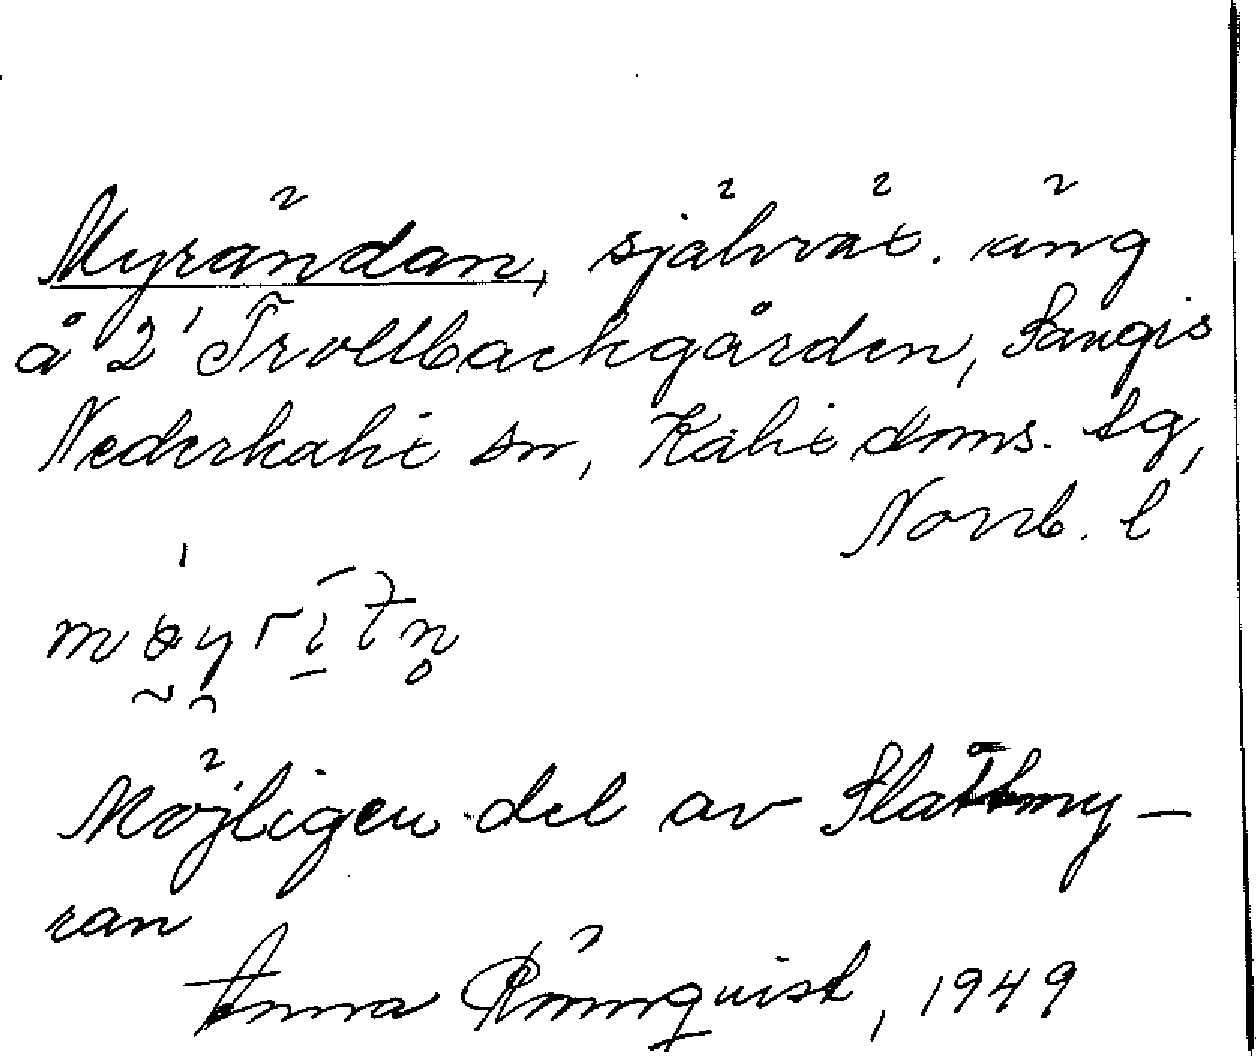 Myrändan, självväx. äng
å 2' Trollbackgården, Sangis
Nederkalix sn, Kalix doms. tg,
Norrb. l
Möjligen del av Slåttmy-
ran
Anna Rönnquist, 1949